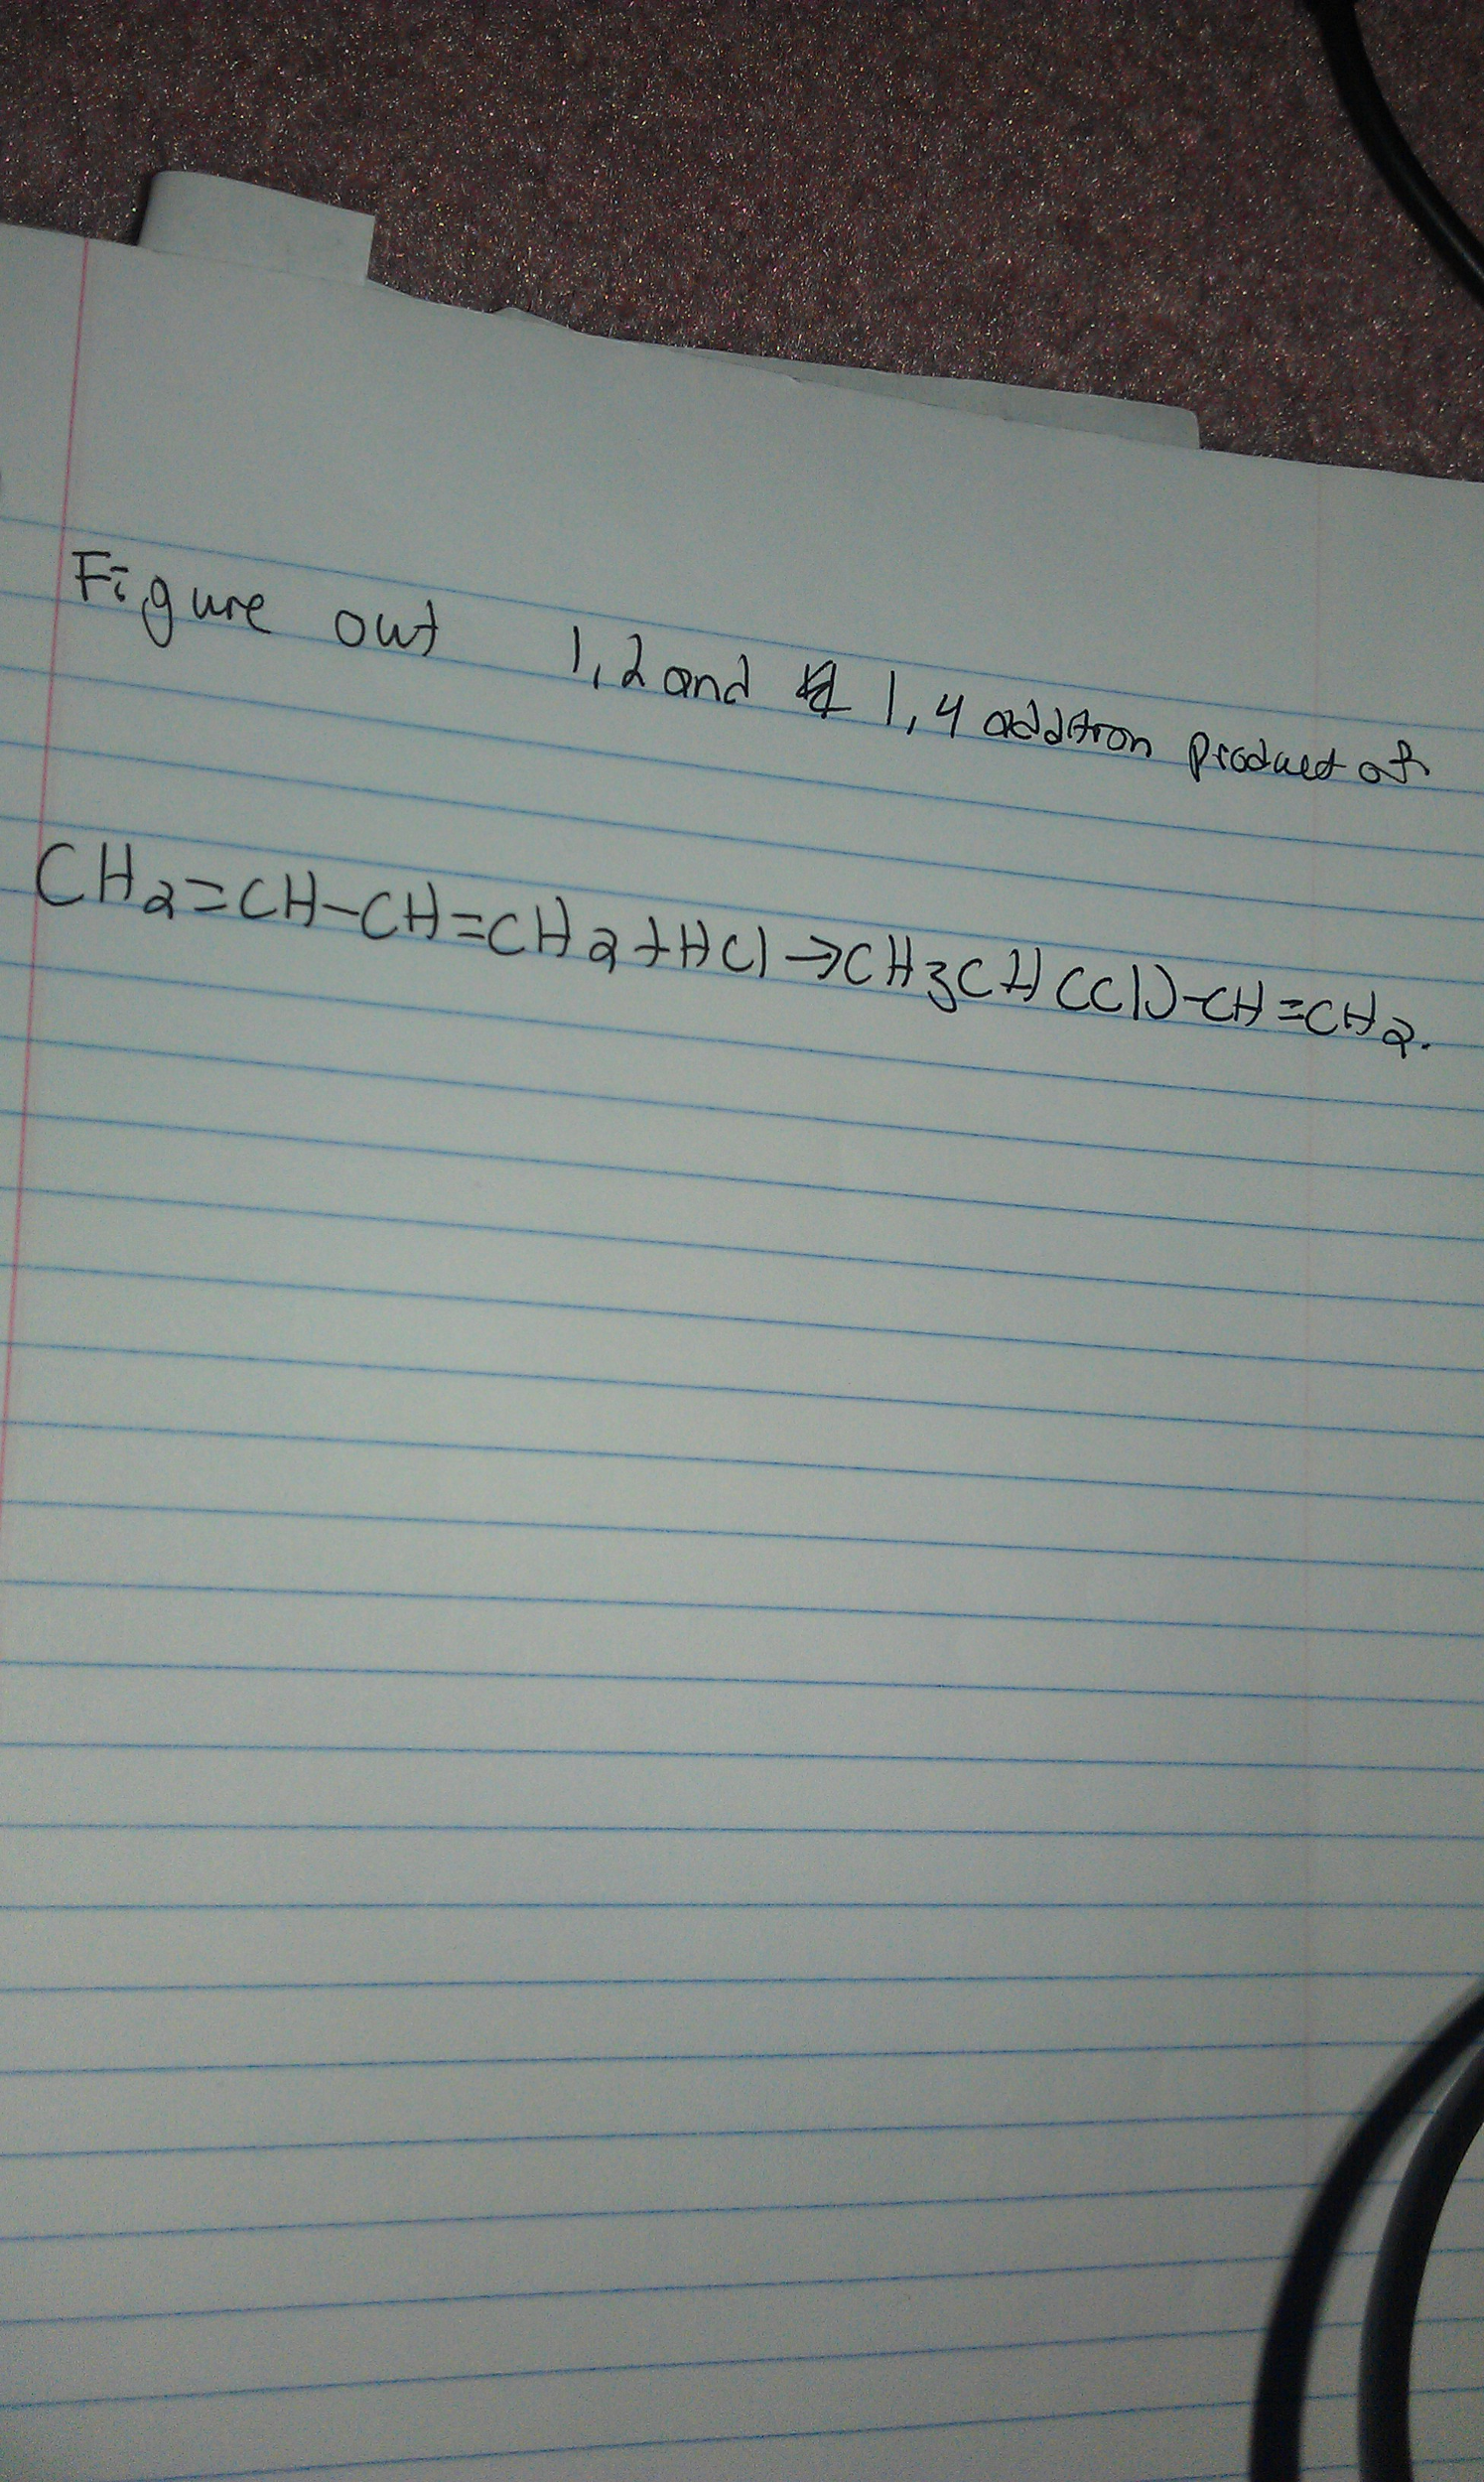 Figure out 1,2 and 1,4 addition product of
CH2=CH-CH=CH2+HCl→CH3CH(Cl)-CH=CH2.